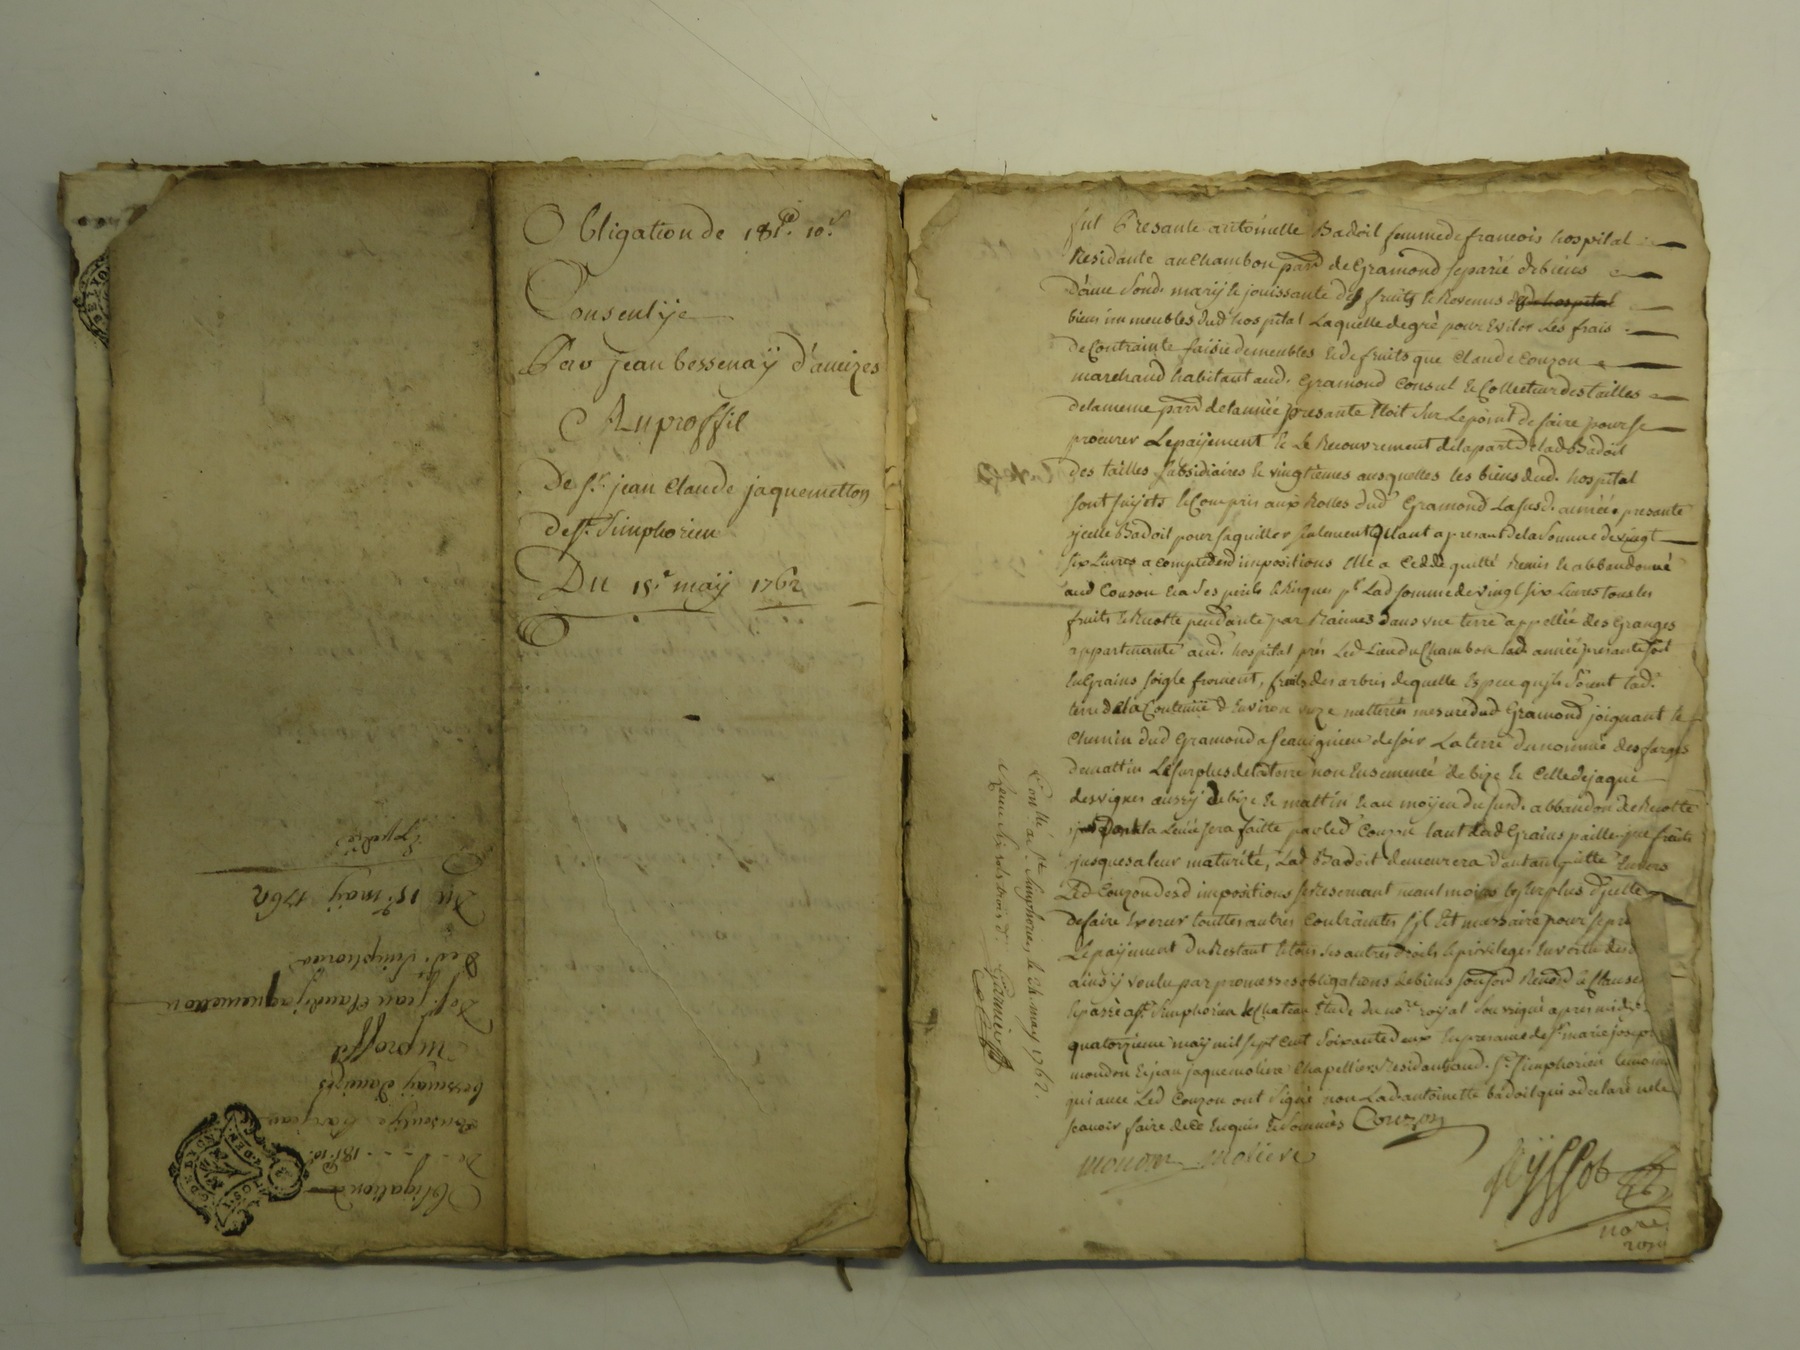 Obligation de 181.# 10.s
Consentÿe
Par jean bessenaÿ d'aveizes
Au proffit
De sr. jean Claude jaquemetton
de st. Simphorien
Du 15.e maÿ 1762
Obligation
De - - - 181# 10s
Consentÿe par jean
bessenaÿ daveizes
Au proffit
De sr. jean Claude jaquemetton
De st. Simphorien
Du 15.e maÿ 1762
Expedié
fut Presante antoinette Badoil femme de francois hospital
Residante au Chambon parr de Gramond separée de biens
D'avec sond. marÿ & jouissante des fruits & Revenus dud hospital
biens immeubles dud hospital Laquelle de gré pour Eviter Les frais
de Contrainte saisie de meubles & de fruits que Claude Couzon
marchand habitant aud. Gramond Consul & Collecteur des tailles
de la meme parr de l'année presante Etoit sur Le point de faire pour se
procurer Le paÿement & Le Recouvrement de la part de lad Badoil
des tailles subsidiaires & vingtiemes ausquelles les biens dud. hospital
sont sujets & Compris aux Rolles dud Gramond La susd. année presante
ÿcelle Badoil pour saquitter seulement quant a presant de la somme de vingt
six Livres a compte desd impositions Elle a Cedde quitté Remis & abbandonné
aud Couzon & a ses perils & Risques pr Lad somme de vingt six Livres tous les
fruits & Recotte pendante par Racines dans une terre appellée des Granges
appartenante aud. hospital prés Led Lieu du Chambon lad année presante soit
En Grains soigle froment, fruits des arbres de quelle Espece quils soient lad.
terre de la Contenüe d'Environ onze metterées mesure dud Gramond joignant le
Chemin dud Gramond a de soir La terre du nommé desfarges
de mattin Le surplus de la terre non Ensemencé de bize & Celle de jaque
desvignes aussÿ de bize & mattin & au moÿen du susd. abbandon de Recotte
dont la Levée sera faitte par led Couzon tant desd Grains paille que fruits
jusques a leur maturité, Lad Badoil demeurera d'autant quitte Envers
Led Couzon desd impositions se Reservant neant moins le surplus d'ÿcelles
de faire Exercer touttes autres Contraintes s'il Est necessaire pour se pro
Le paÿement du Restant & tous ses autres droits & privileges En vertu des
ainsÿ voulu par promesses obligations de biens Renond & Clauses
& passé a st. Simphorien le Chateau Etude du nore. roÿal soussigné apres midÿ
quatorzieme maÿ mil sept cent soixante deux En presance de sr. marie joseph
mondon & jean jaque moliere Chapelliers Residants aud. st. Simphorien temoins
qui avec Led Couzon ont signé non Lad antoinette badoil qui a declaré ne le
scavoir faire de ce Enquis & sommés Couzon
monon moliere
nore
roy
Conllé a st. Simphorien, le 26 may 1762.
Reçu six sols trois d.
Garnier